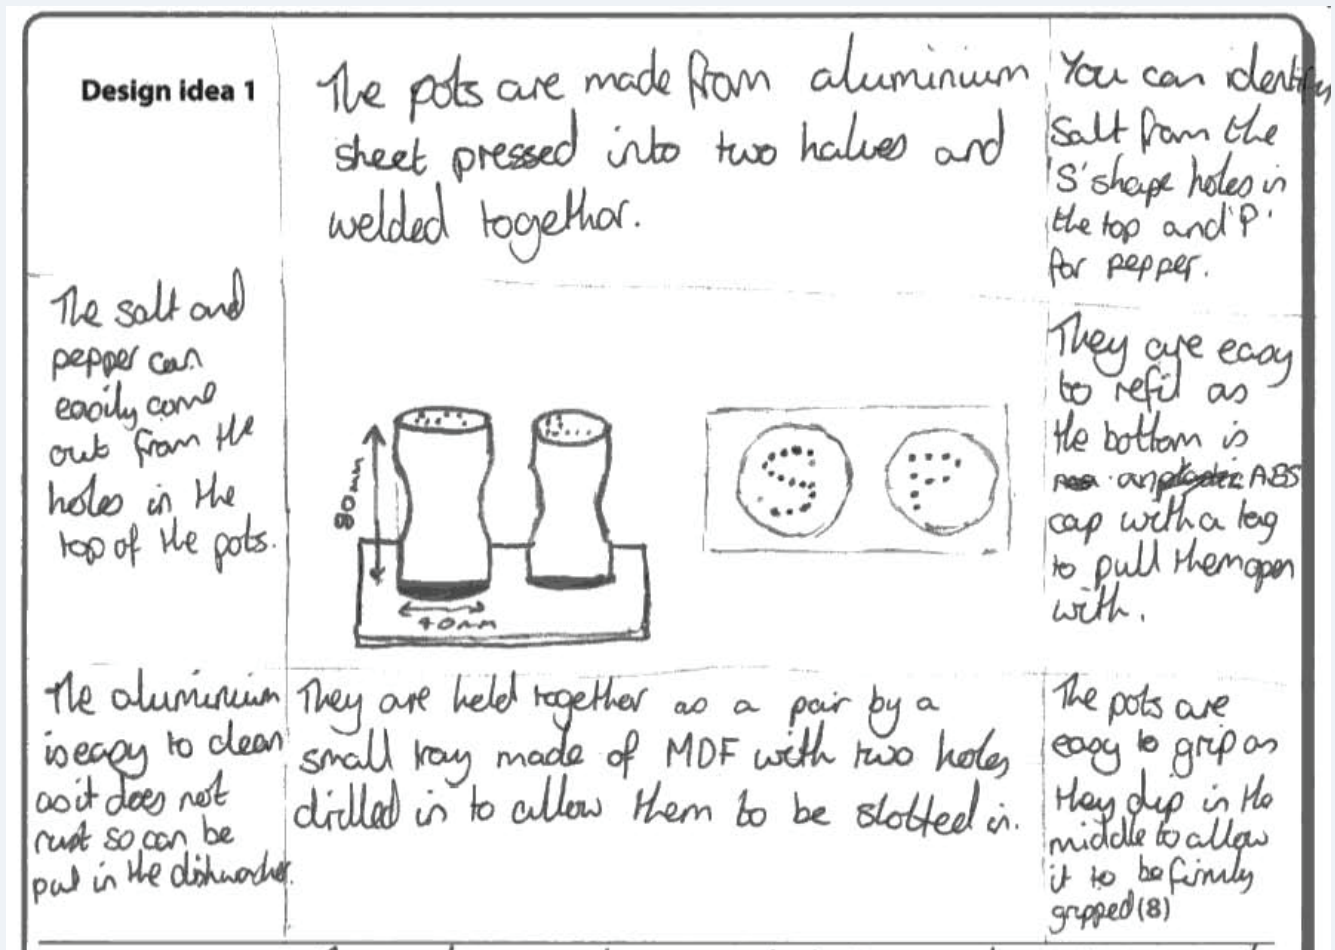 Design idea 1
The pots are made from aluminium
sheet pressed into two halves and
welded together.
You can identify
Salt from the
'S' shape holes in
the top and 'P'
for pepper.
The salt and
pepper can
easily come
out from the
holes in the
top of the pots.
80mm
40mm
They are easy
to refil as
the bottom is
an plastic ABS
cap with a tag
to pull them open
with.
The aluminium
is easy to clean
as it does not
rust so can be
put in the dishwasher.
They are held together as a pair by a
small tray made of MDF with two holes
drilled in to allow them to be slotted in.
The pots are
easy to grip as
they dip in the
middle to allow
it to be firmly
gripped (8)